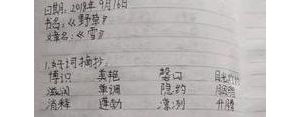 日期：2018年9月16日
书名：《野草》
文章名：《雪》
1.好词摘抄：
博识 美艳 磬口
滋润 单调 隐约
消释 蓬勃 凛冽 升腾